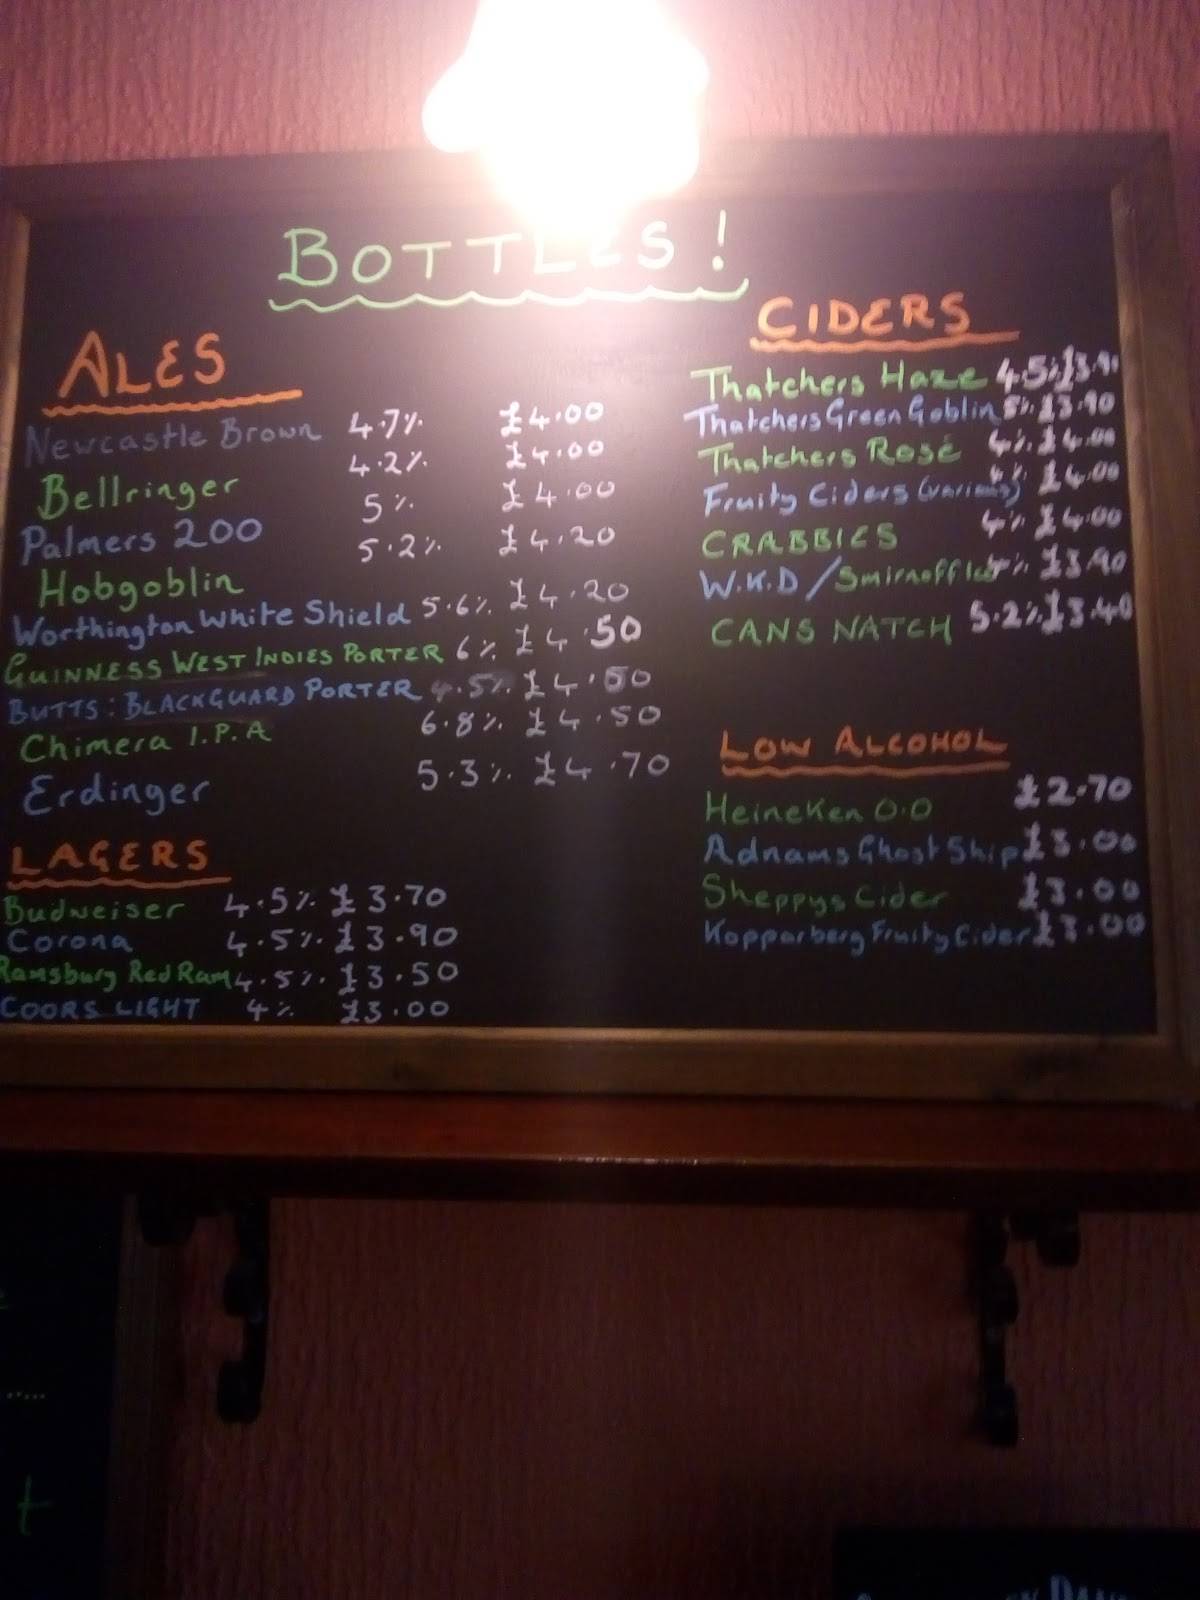 BOTTLES!
ALES
Newcastle Brown 4.7% £4.00
Bellringer 4.2% £4.00
Palmers 200 5% £4.00
Hobgoblin 5.2% £4.20
Worthington White Shield 5.6% £4.20
GUINNESS WEST INDIES PORTER 6% £4.50
BUTTS: BLACKGUARD PORTER 4.5% £4.50
Chimera I.P.A 6.8% £4.50
Erdinger 5.3% £4.70
LAGERS
Budweiser 4.5% £3.70
Corona 4.5% £3.90
Ramsbury Red Ram 4.5% £3.50
COORS LIGHT 4% £3.00
CIDERS
Thatchers Haze 4.5% £3.90
Thatchers Green Goblin 5% £3.90
Thatchers Rosé 4% £4.00
Fruity Ciders (various) 4% £4.00
CRABBIES 4% £4.00
W.K.D / Smirnoff Ice 4% £3.90
CANS NATCH 5.2% £3.40
LOW ALCOHOL
Heineken 0.0 £2.70
Adnams Ghost Ship £3.00
Sheppys Cider £3.00
Kopparberg Fruity Cider £3.00